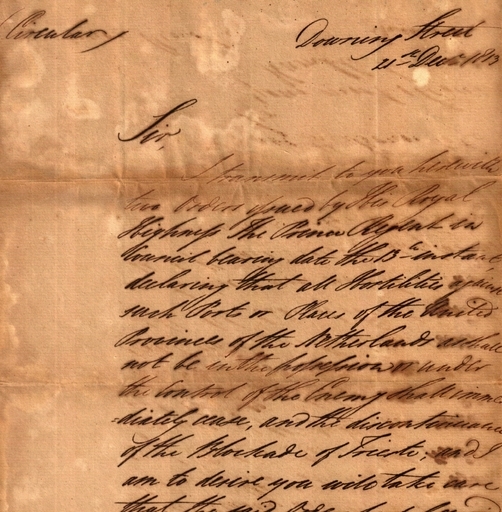 (Circular)
Downing Street
21st Decr 1813
Sir,
I transmit to you herewith
two Orders issued by His Royal
Highness the Prince Regent in
Council bearing date the 13th instant,
declaring that all Hostilities against
such Ports or Places of the United
Provinces of the Netherlands as shall
not be in the possession or under
the Control of the Enemy shall imme
-diately cease, and the discontinuance
of the Blockade of Trieste; and I
am to desire you will take care
that the said